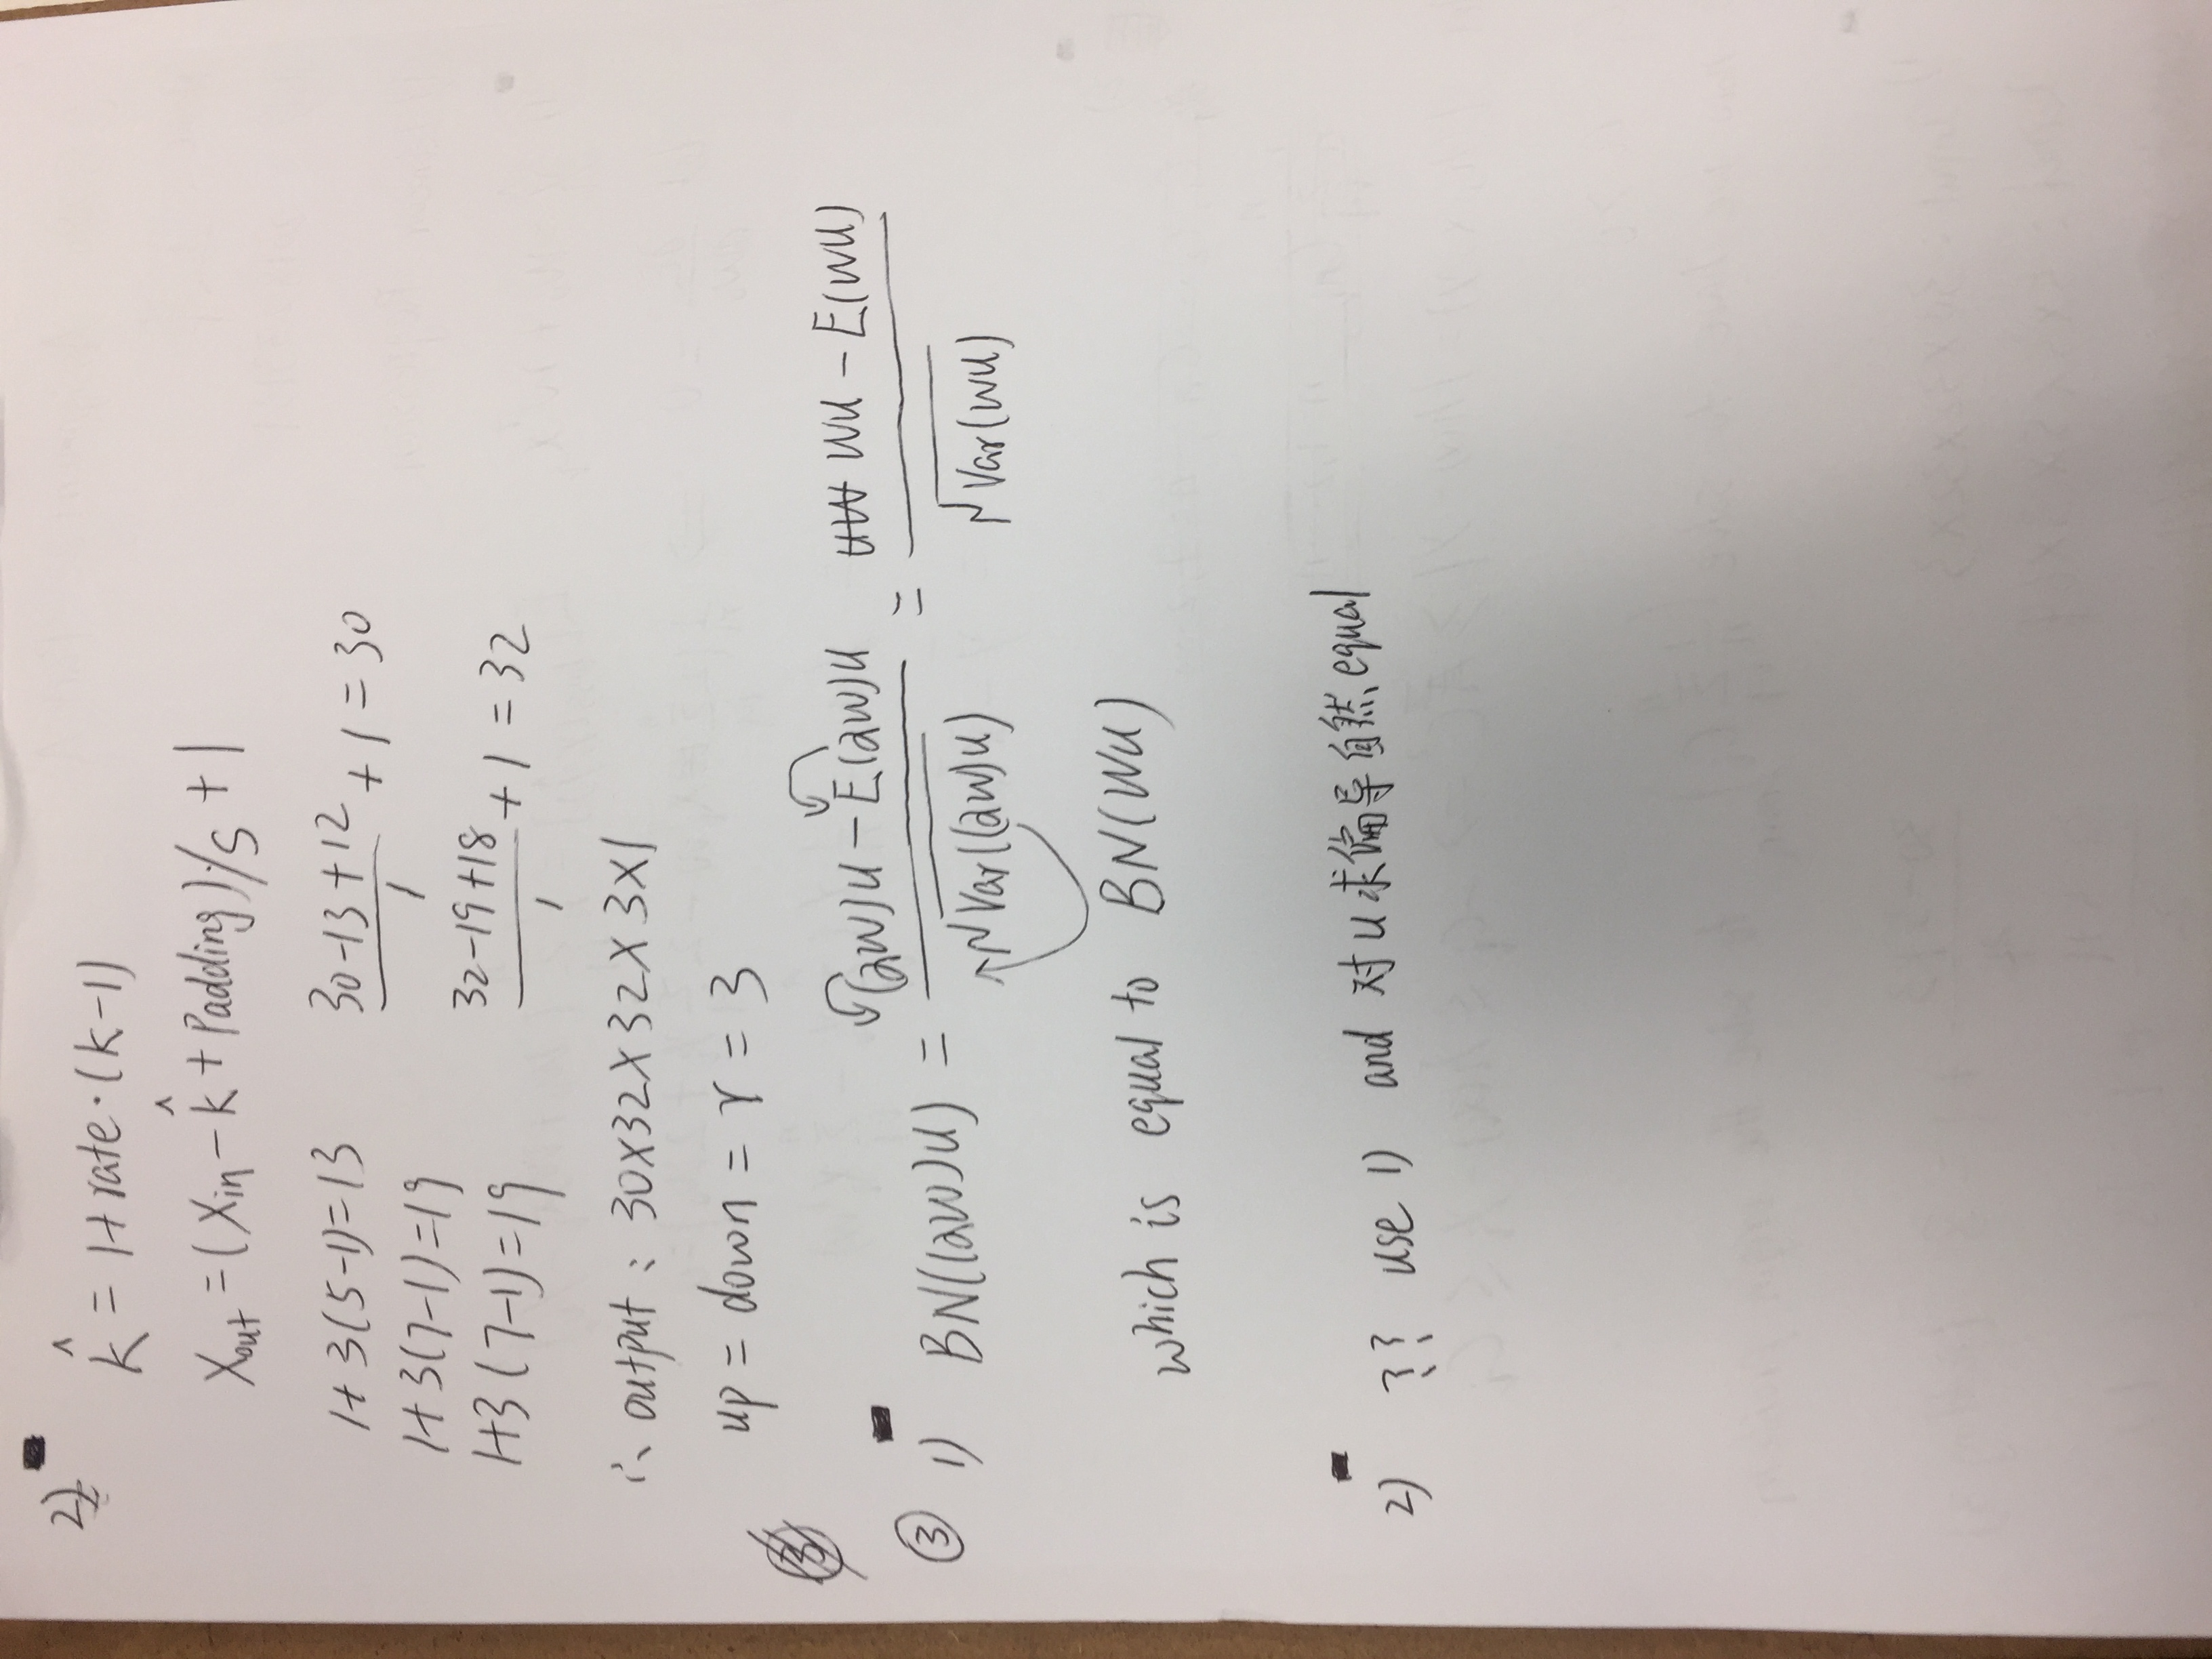 2)
k̂ = 1+rate·(k-1)
Xout = (Xin - k̂ + Padding)/S + 1
1+3(5-1)=13
30-13+12 / 1 + 1 = 30
1+3(7-1)=19
1+3(7-1)=19
32-19+18 / 1 + 1 = 32
∴ output : 30×32×32×3×1
up = down = r = 3
③ 1) BN((aw)u) = (aw)u - E(aw)u / √Var((aw)u) = wu - E(wu) / √Var(wu)
which is equal to BN(wu)
2) ?? use 1) and 对u求偏导自然equal